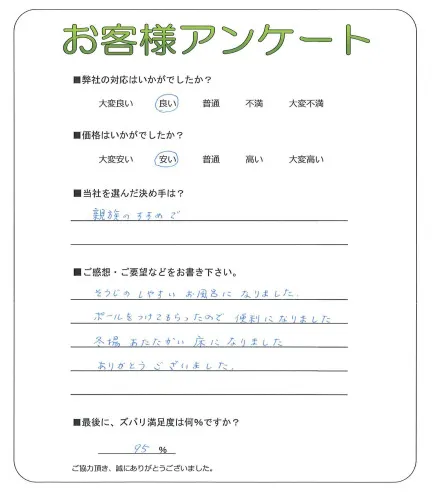 お客様アンケート
■弊社の対応はいかがでしたか？
大変良い 良い 普通 不満 大変不満
■価格はいかがでしたか？
大変安い 安い 普通 高い 大変高い
■当社を選んだ決め手は？
親族のすすめで
■ご感想・ご要望などをお書き下さい。
そうじのしやすい お風呂に なりました.
ポールをつけてもらったので 便利になりました
冬場 あたたかい 床に なりました
ありがとう ございました.
■最後に、ズバリ満足度は何%ですか？
95 %
ご協力頂き、誠にありがとうございました。